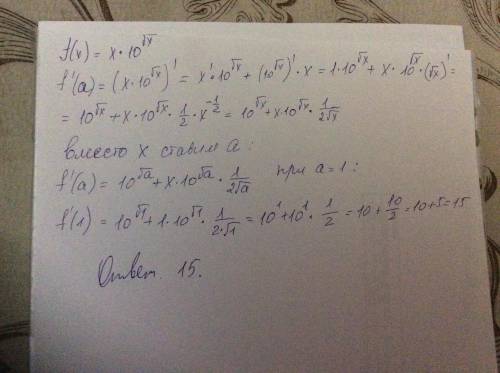 f(x) = x · 10^√x
f'(a) = (x · 10^√x)' = x' · 10^√x + (10^√x)' · x = 1 · 10^√x + x · 10^√x · (√x)' =
= 10^√x + x · 10^√x · 1/2 · x^(-1/2) = 10^√x + x · 10^√x · 1/(2√x)
вместо x ставим a:
f'(a) = 10^√a + x · 10^√a · 1/(2√a) при a = 1:
f'(1) = 10^√1 + 1 · 10^√1 · 1/(2·√1) = 10^1 + 10^1 · 1/2 = 10 + 10/2 = 10 + 5 = 15
Ответ. 15.